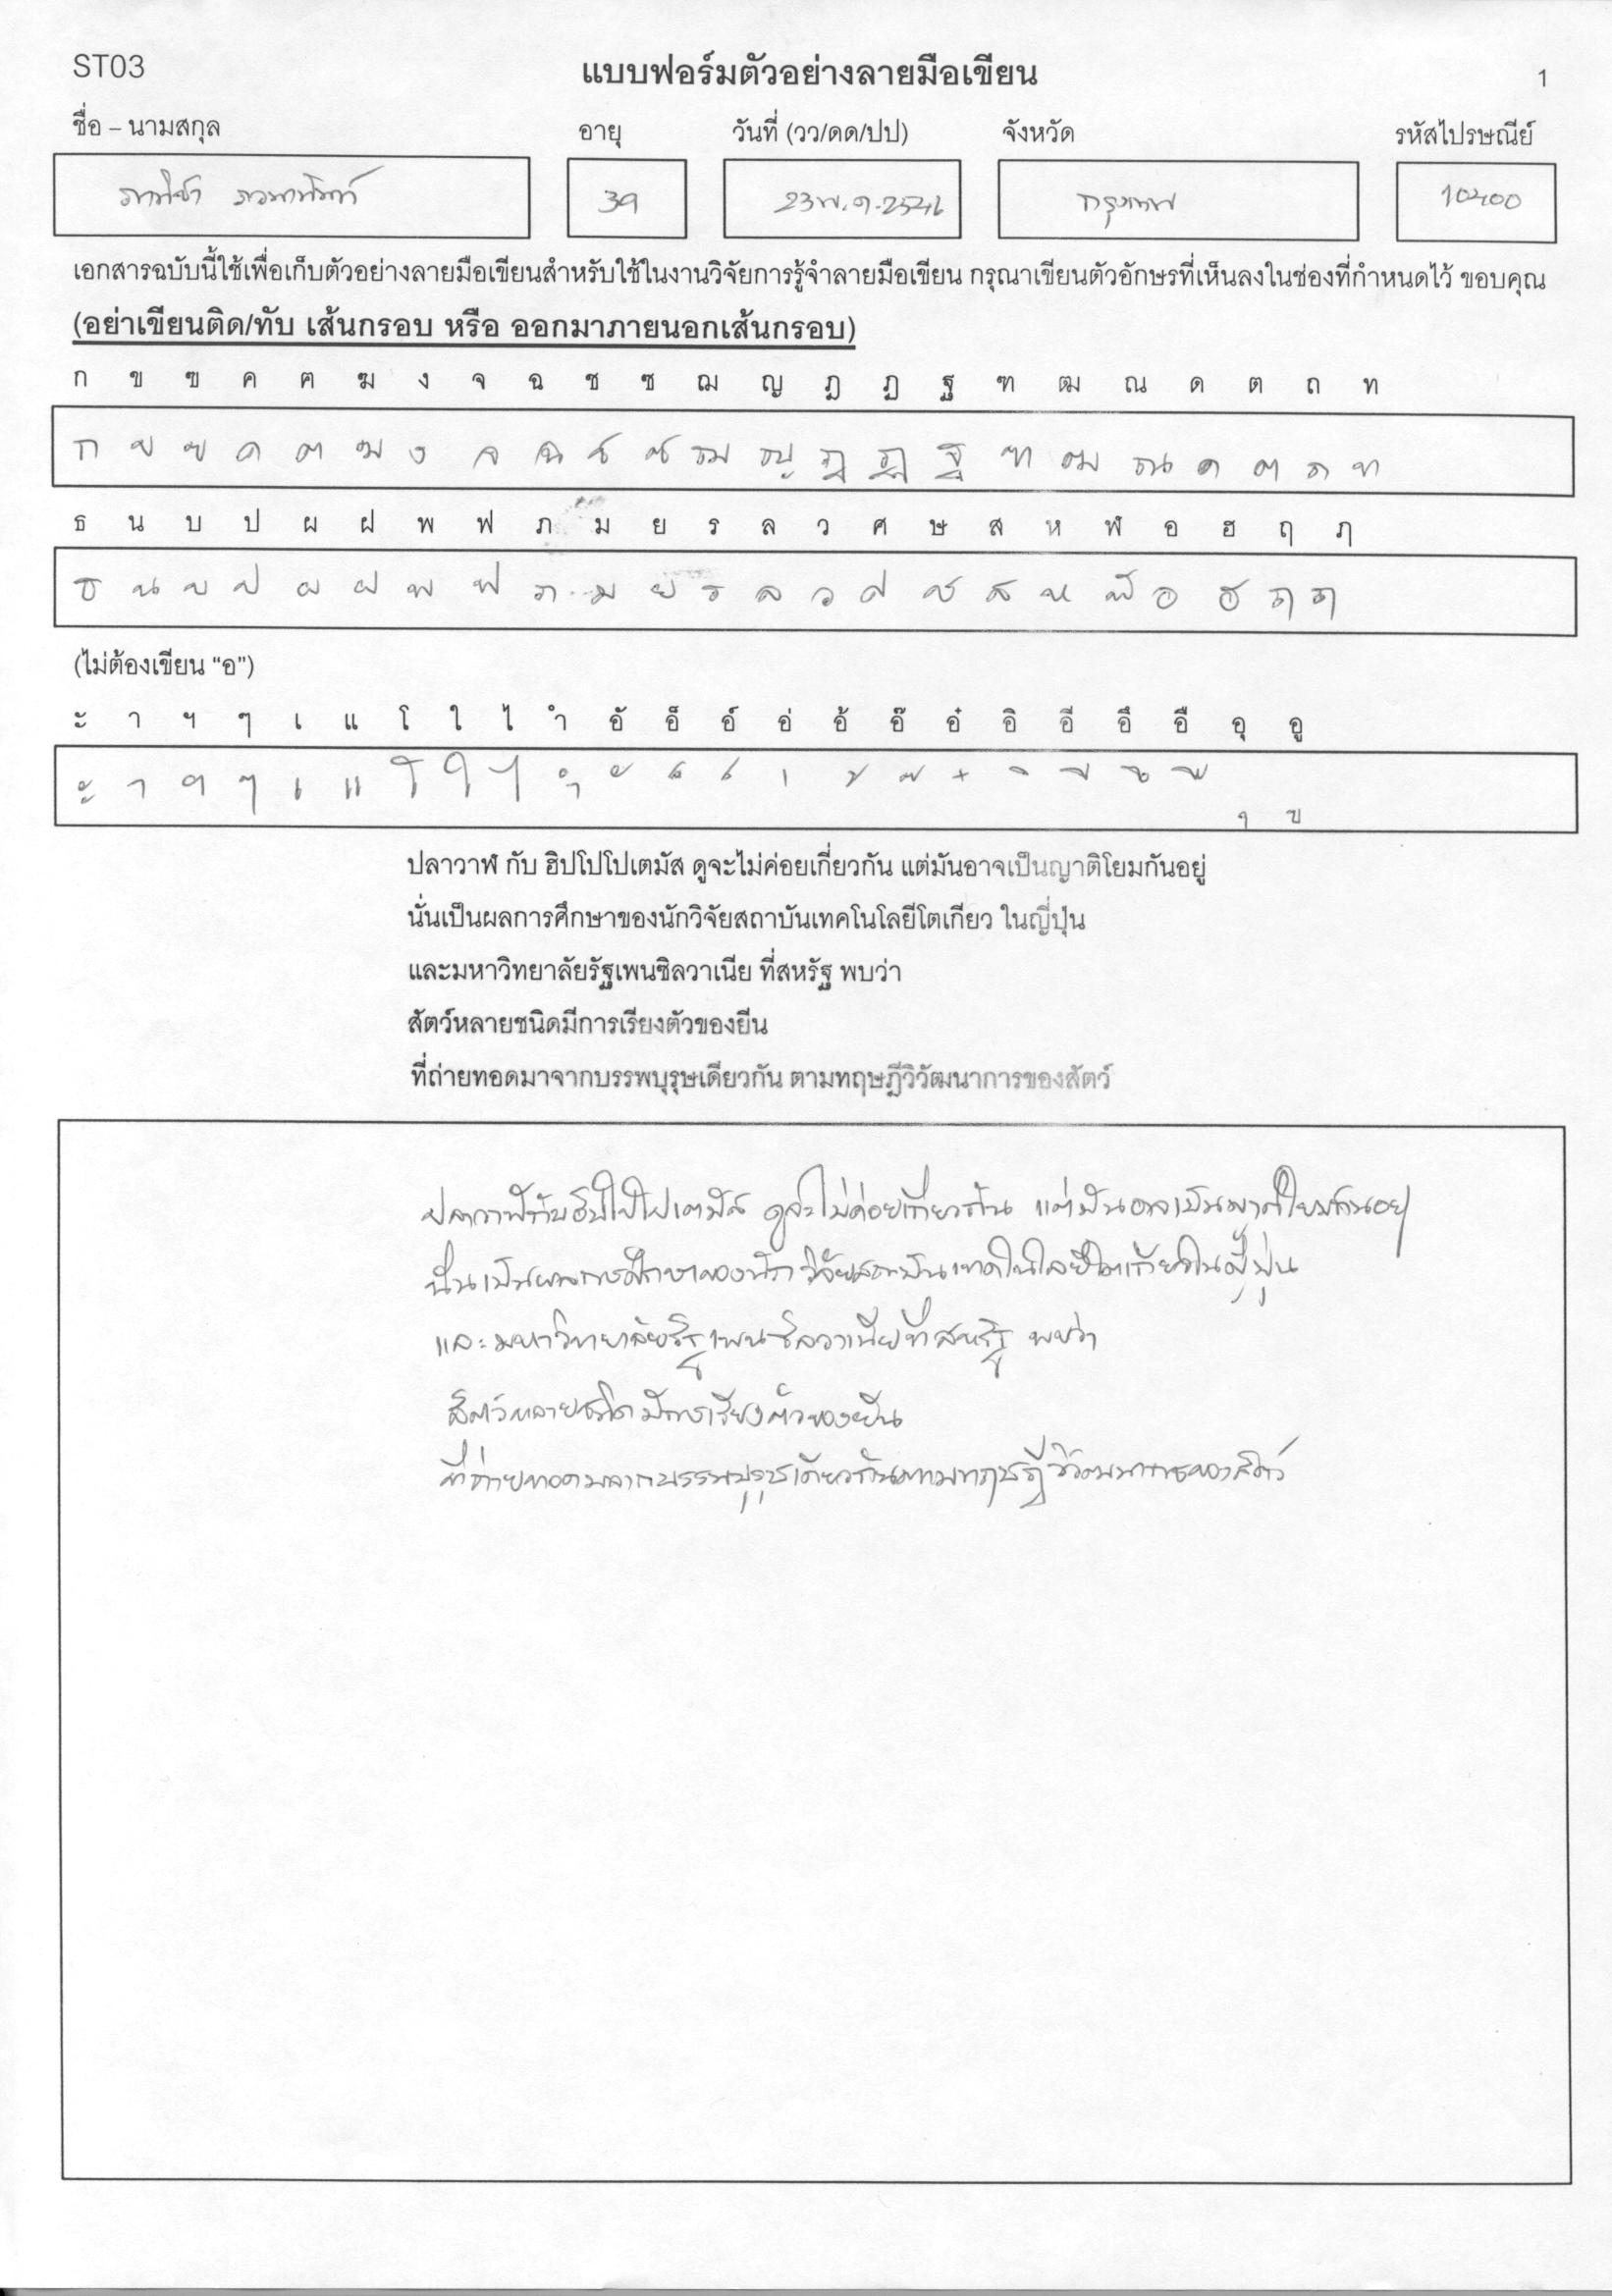 ST03
แบบฟอร์มตัวอย่างลายมือเขียน
1
ชื่อ – นามสกุล อายุ วันที่ (วว/ดด/ปป) จังหวัด รหัสไปรษณีย์
39 กรุงเทพ 10400
เอกสารฉบับนี้ใช้เพื่อเก็บตัวอย่างลายมือเขียนสำหรับใช้ในงานวิจัยการรู้จำลายมือเขียน กรุณาเขียนตัวอักษรที่เห็นลงในช่องที่กำหนดไว้ ขอบคุณ
(อย่าเขียนติด/ทับ เส้นกรอบ หรือ ออกมาภายนอกเส้นกรอบ)
ก ข ฃ ค ฅ ฆ ง จ ฉ ช ซ ฌ ญ ฎ ฏ ฐ ฑ ฒ ณ ด ต ถ ท
ก ข ฃ ค ฅ ฆ ง จ ฉ ช ซ ฌ ญ ฎ ฏ ฐ ฑ ฒ ณ ด ต ถ ท
ธ น บ ป ผ ฝ พ ฟ ภ ม ย ร ล ว ศ ษ ส ห ฬ อ ฮ ฤ ฦ
ธ น บ ป ผ ฝ พ ฟ ภ ม ย ร ล ว ศ ษ ส ห ฬ อ ฮ ฤ ฦ
(ไม่ต้องเขียน “อ”)
ะ า ฯ ๆ เ แ โ ใ ไ ำ อั อ็ อ์ อ่ อ้ อ๊ อ๋ อิ อี อึ อื อุ อู
ะ า ฯ ๆ เ แ โ ใ ไ ำ ั ็ ์ ่ ้ ๊ ๋ ิ ี ึ ื ุ ู
ปลาวาฬ กับ ฮิปโปโปเตมัส ดูจะไม่ค่อยเกี่ยวกัน แต่มันอาจเป็นญาติโยมกันอยู่
นั่นเป็นผลการศึกษาของนักวิจัยสถาบันเทคโนโลยีโตเกียว ในญี่ปุ่น
และมหาวิทยาลัยรัฐเพนซิลวาเนีย ที่สหรัฐ พบว่า
สัตว์หลายชนิดมีการเรียงตัวของยีน
ที่ถ่ายทอดมาจากบรรพบุรุษเดียวกัน ตามทฤษฎีวิวัฒนาการของสัตว์
ปลาวาฬกับฮิปโปโปเตมัส ดูจะไม่ค่อยเกี่ยวกัน แต่มันอาจเป็นญาติโยมกันอยู่
นั่นเป็นผลการศึกษาของนักวิจัยสถาบันเทคโนโลยีโตเกียวในญี่ปุ่น
และมหาวิทยาลัยรัฐเพนซิลวาเนียที่สหรัฐ พบว่า
สัตว์หลายชนิดมีการเรียงตัวของยีน
ที่ถ่ายทอดมาจากบรรพบุรุษเดียวกันตามทฤษฎีวิวัฒนาการของสัตว์